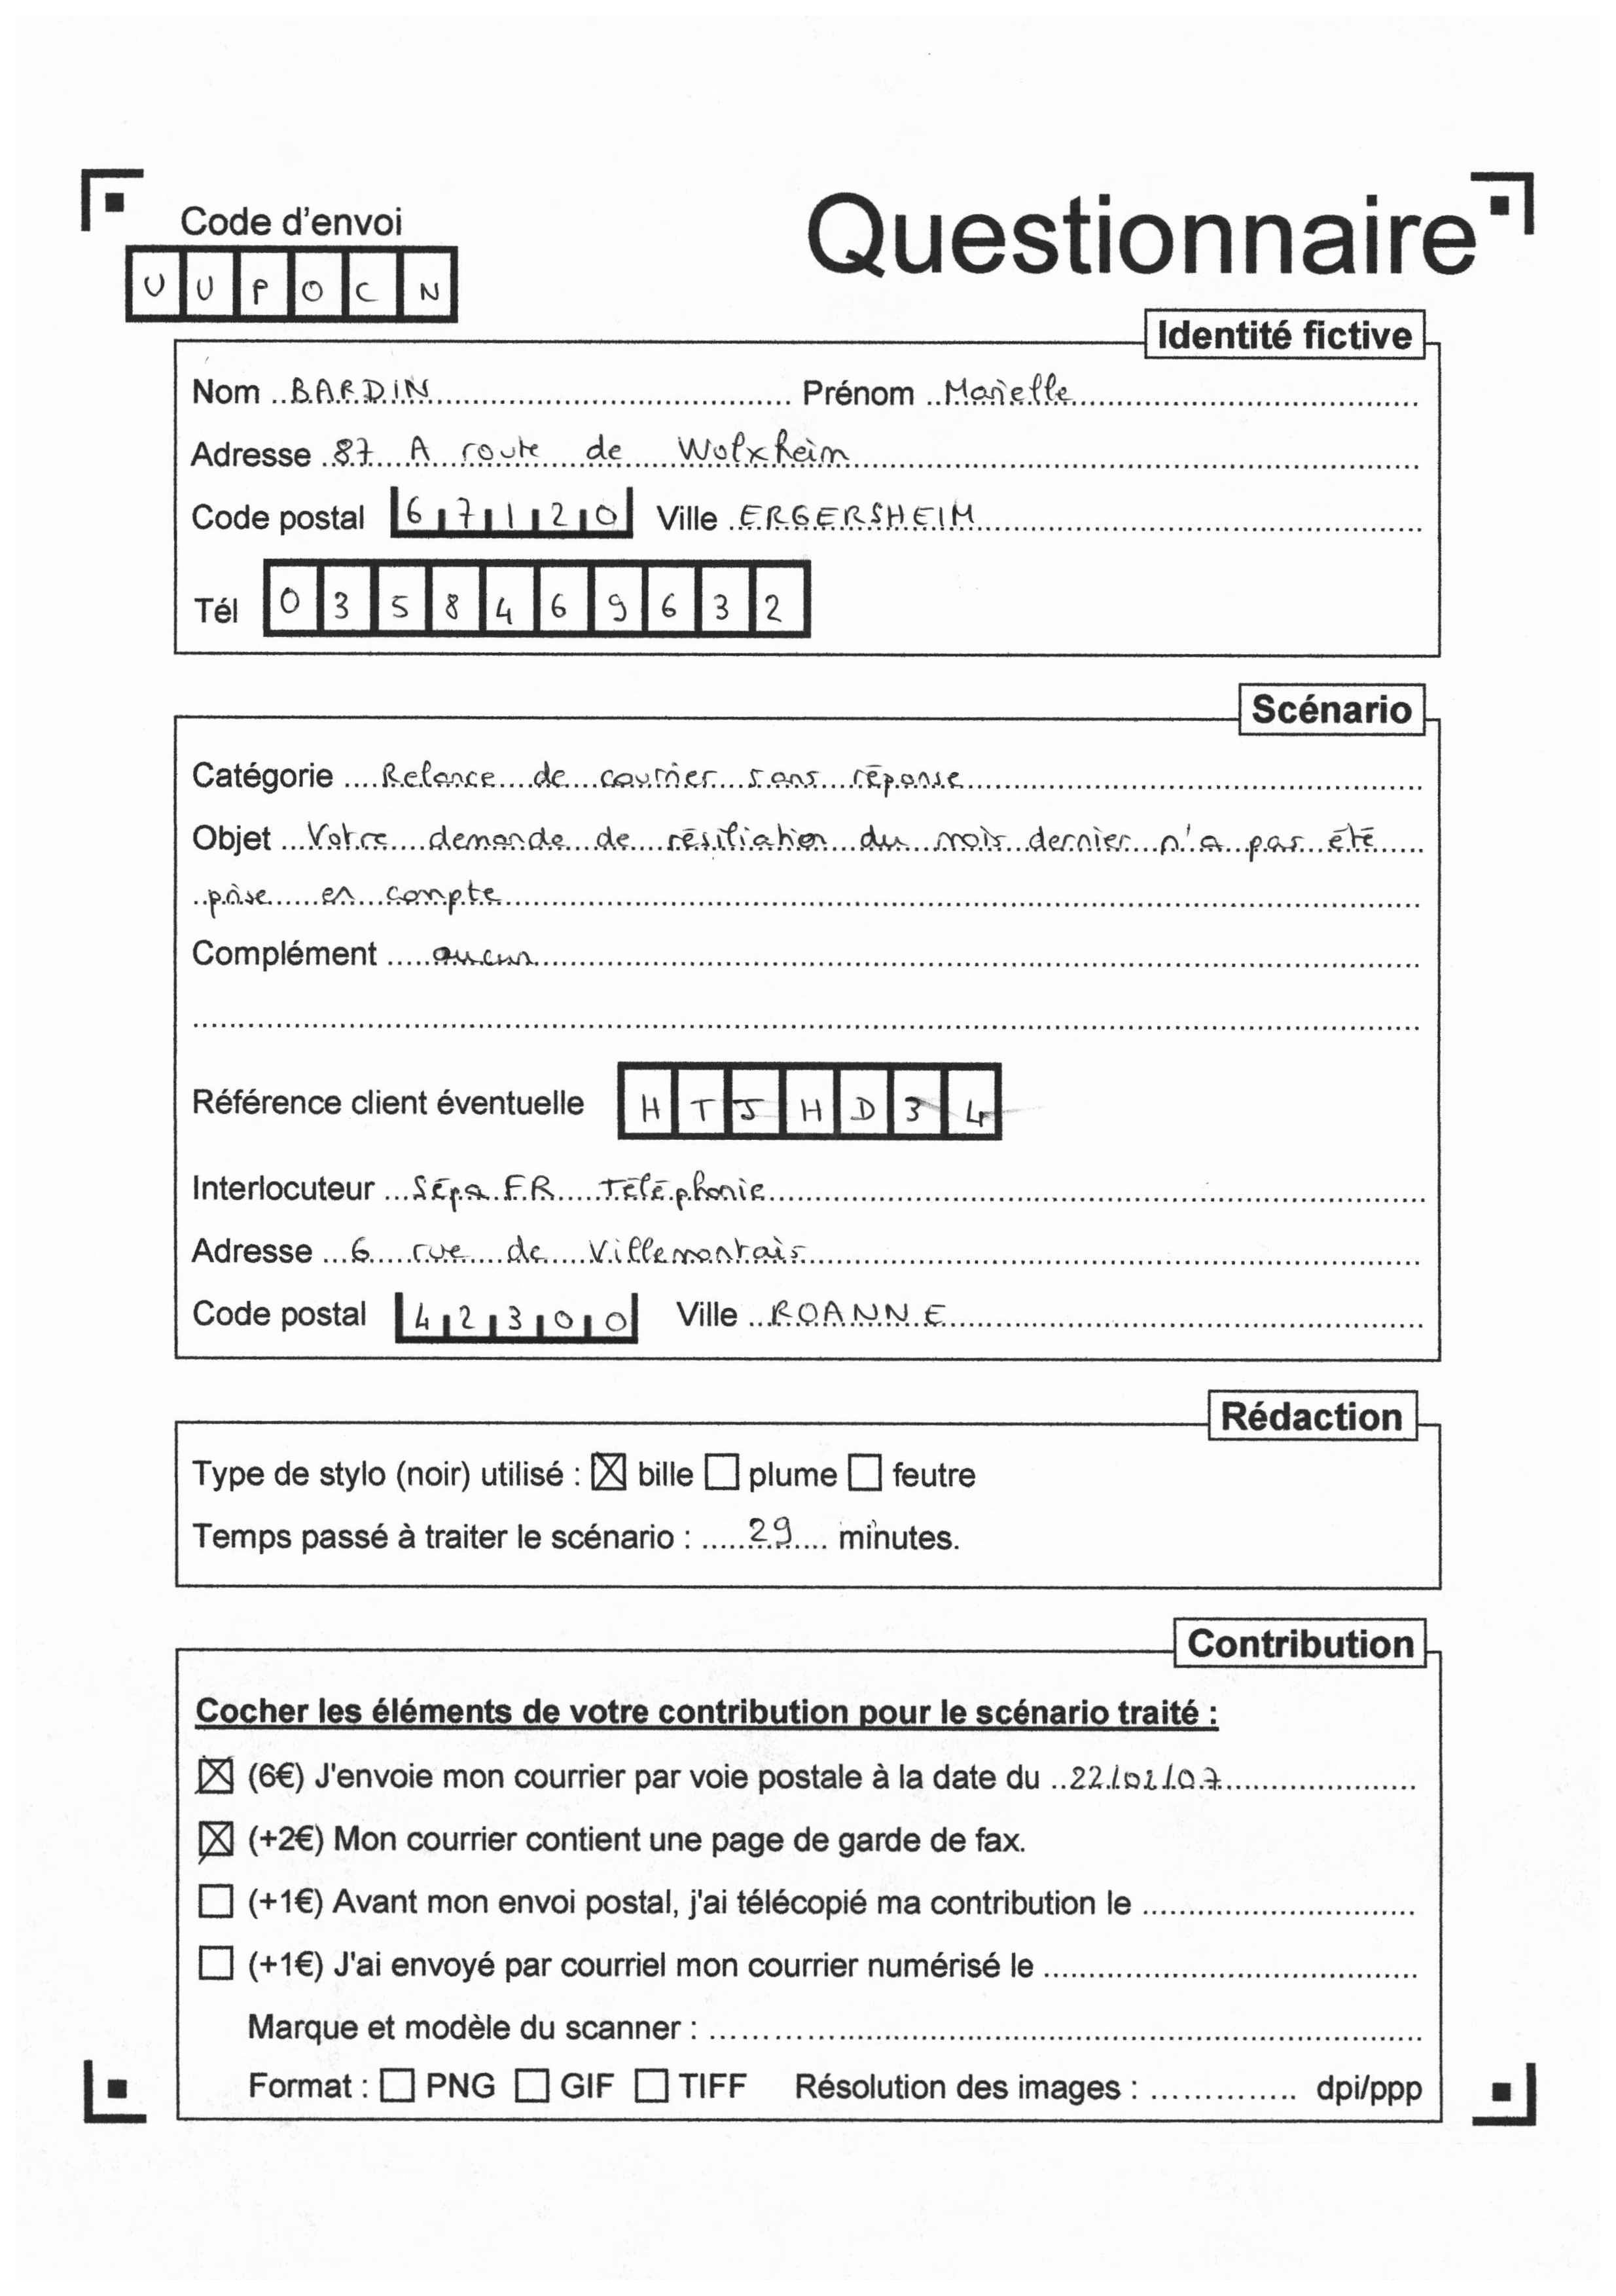 Code d'envoi
Questionnaire
U U P O C N
Identité fictive
Nom BARDIN Prénom Marielle
Adresse 87 A route de Wolxheim
Code postal 67120 Ville ERGERSHEIM
Tél 0358469632
Scénario
Catégorie Relance de courrier sans réponse
Objet Votre demande de résiliation du mois dernier n'a pas été
prise en compte
Complément aucun
Référence client éventuelle HTJHD34
Interlocuteur SépaFR Téléphonie
Adresse 6 rue de Villemontais
Code postal 42300 Ville ROANNE
Rédaction
Type de stylo (noir) utilisé : ☒ bille ☐ plume ☐ feutre
Temps passé à traiter le scénario : 29 minutes.
Contribution
Cocher les éléments de votre contribution pour le scénario traité :
☒ (6€) J'envoie mon courrier par voie postale à la date du 22/02/07
☒ (+2€) Mon courrier contient une page de garde de fax.
☐ (+1€) Avant mon envoi postal, j'ai télécopié ma contribution le
☐ (+1€) J'ai envoyé par courriel mon courrier numérisé le
Marque et modèle du scanner :
Format : ☐ PNG ☐ GIF ☐ TIFF Résolution des images : dpi/ppp